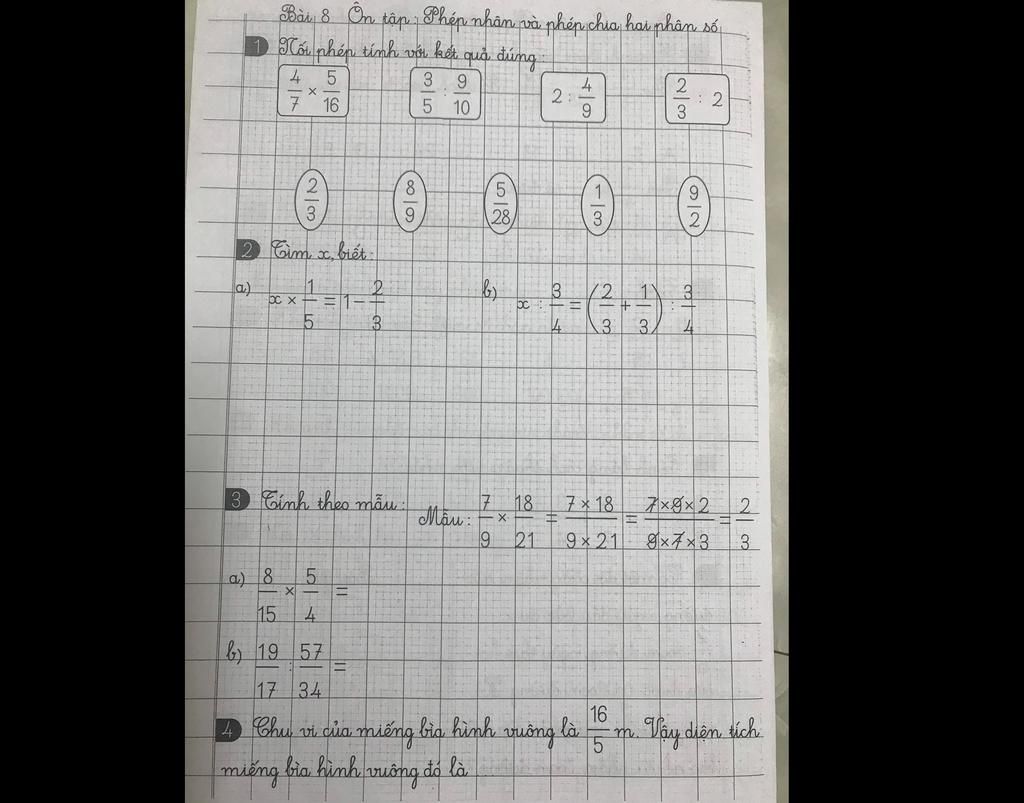 Bài 8 Ôn tập: Phép nhân và phép chia hai phân số
1 Nối phép tính với kết quả đúng:
4/7 × 5/16 3/5 : 9/10 2 : 4/9 2/3 : 2
2/3 8/9 5/28 1/3 9/2
2 Tìm x, biết:
a) x × 1/5 = 1 − 2/3 b) x : 3/4 = (2/3 + 1/3) : 3/4
3 Tính theo mẫu: Mẫu: 7/9 × 18/21 = 7 × 18/9 × 21 = 7 × 9 × 2/9 × 7 × 3 = 2/3
a) 8/15 × 5/4 =
b) 19/17 : 57/34 =
4 Chu vi của miếng bìa hình vuông là 16/5 m. Vậy diện tích
miếng bìa hình vuông đó là